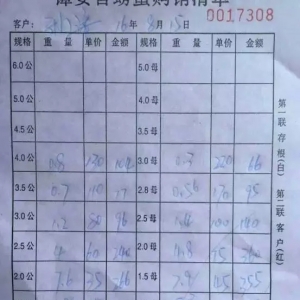 客户: 16年8月15日 0017308
规格 重量 单价 金额 规格 重量 单价 金额
6.0公 5.0母
5.0公 4.5母
4.5公 3.5母
4.0公 0.8 130 104 3.0母 0.3 220 66
3.5公 0.7 110 77 2.8母 0.56 170 95
3.0公 1.2 80 96 2.5母 100 140
2.5公 4 60 240 2.0母 4.8 75
2.0公 7.6 35 266 1.5母 45 255
第一联存根(白) 第二联客户(红)